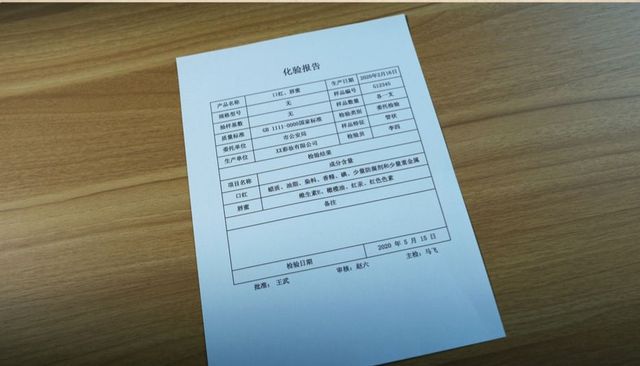 化验报告
产品名称 口红、唇蜜 生产日期 2020年2月16日
规格型号 无 样品编号 512345
抽样基数 无 样品数量 各一支
质量标准 GB 1111-0000国家标准 检验类别 委托检验
委托单位 市公安局 样品特征 管状
生产单位 XX彩妆有限公司 检验员 李四
检验结果
项目名称 成分含量
口红 蜡质、油脂、染料、香精、碘、少量防腐剂和少量重金属
唇蜜 维生素E、橄榄油、红汞、红色色素
备注
检验日期 2020 年 5 月 15 日
批准： 王武 审核：赵六 主检：马飞